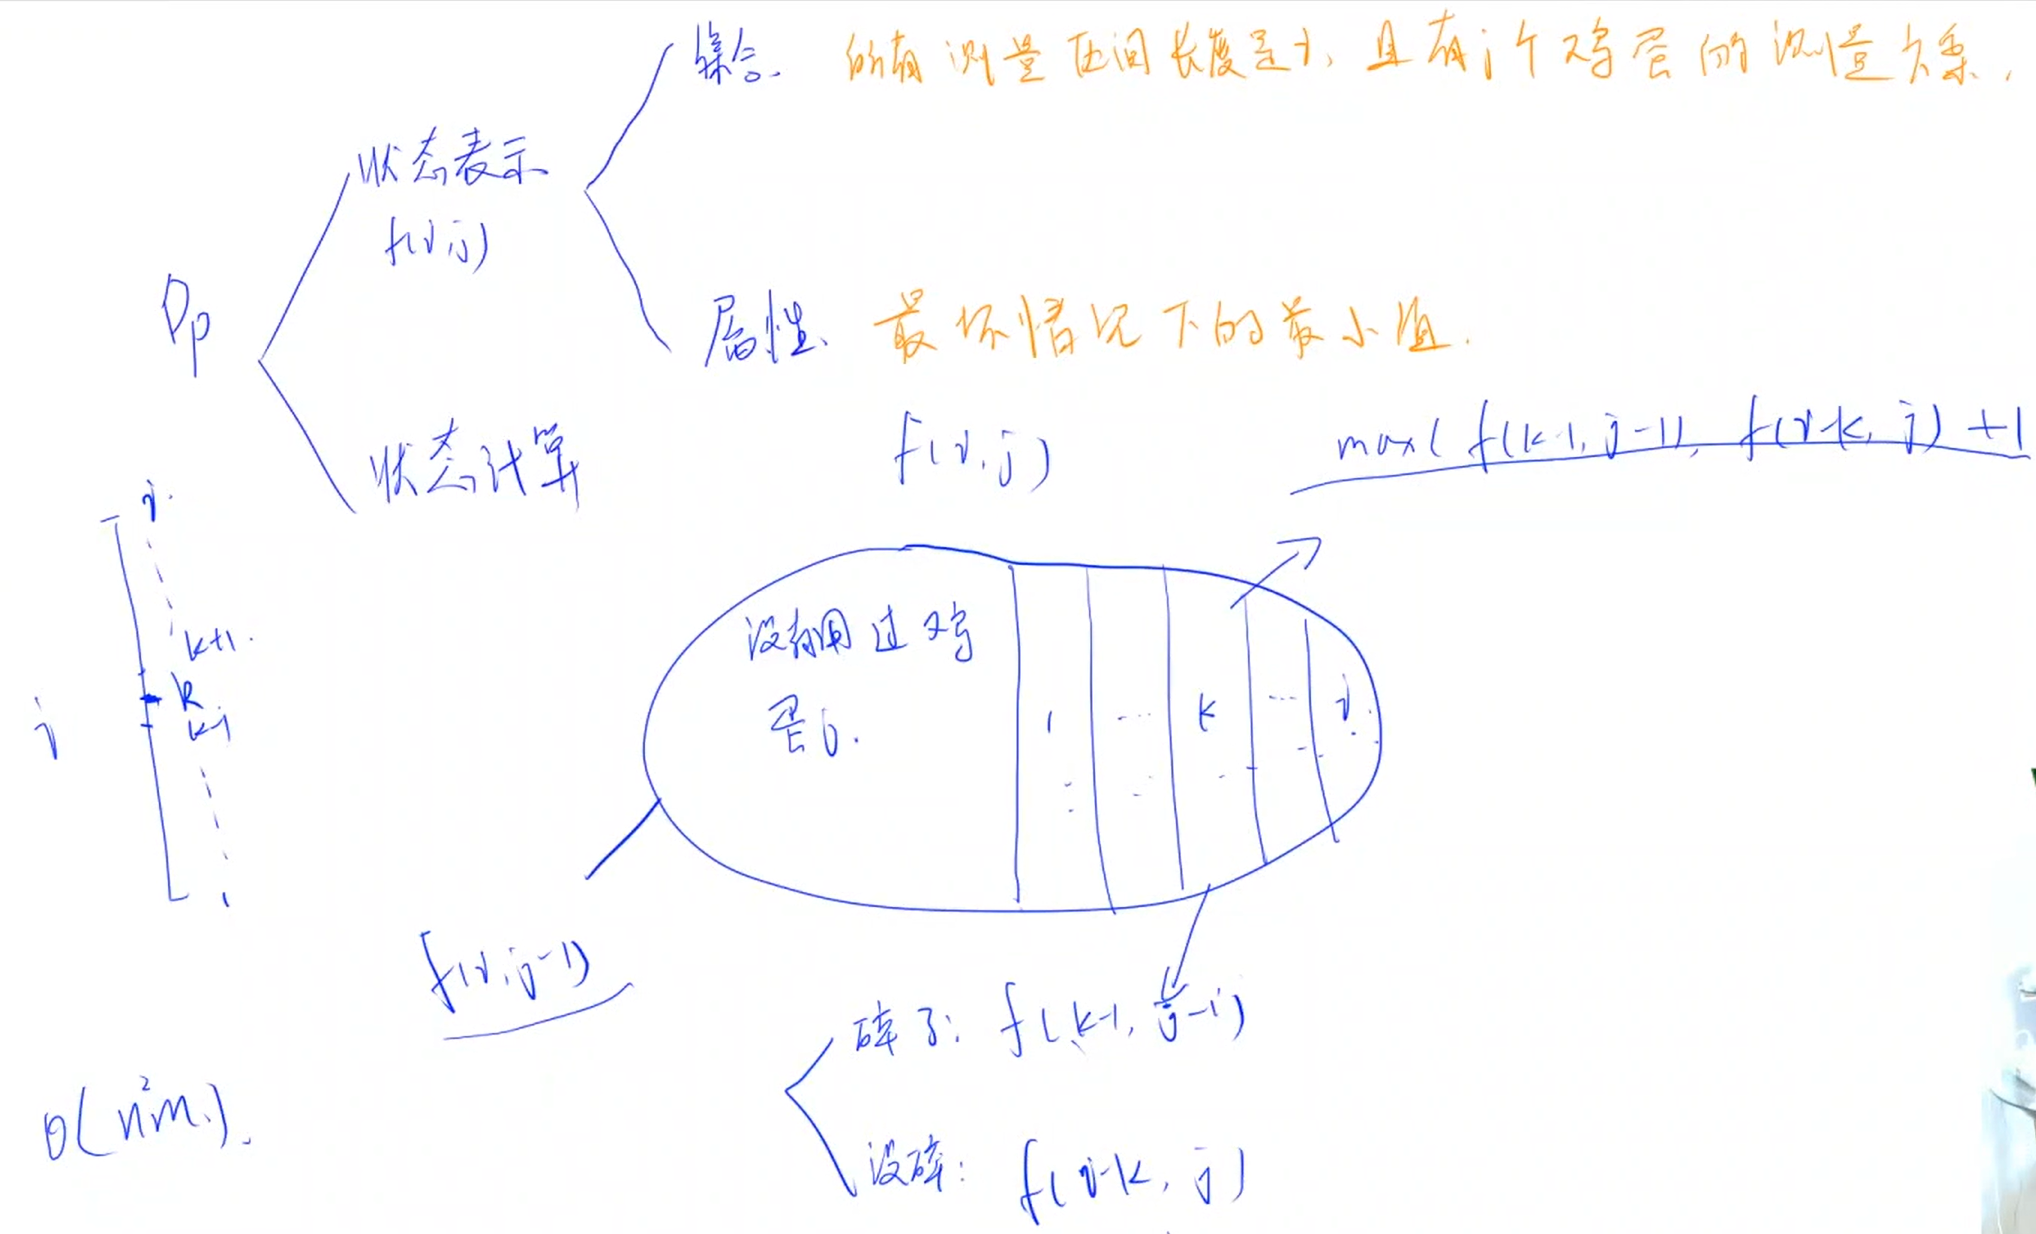 集合. 所有测量区间长度是i, 且有j个鸡蛋的测量方案.
状态表示
f(i,j)
属性. 最坏情况下的最小值.
Dp
状态计算
f(i,j)
max( f(k-1, j-1), f(i-k, j) +1
i
k+1
k
k-1
i
1
没有用过鸡
蛋j.
1 ... k ... i
f(i,j-1)
碎了: f(k-1, j-1)
没碎: f(i-k, j)
O(n²m).